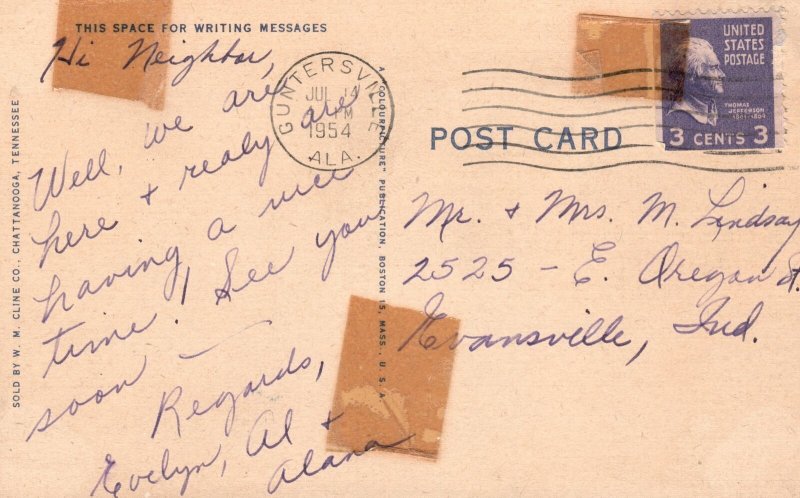 THIS SPACE FOR WRITING MESSAGES
Hi Neighbor,
Well, we are
here + realy are
having a nice
time! See you
soon —
Regards,
Evelyn, Al +
Alana
SOLD BY W. M. CLINE CO., CHATTANOOGA, TENNESSEE
A "COLOURPICTURE" PUBLICATION, BOSTON 15, MASS., U.S.A.
GUNTERSVILLE
JUL 14
PM
1954
ALA.
POST CARD
UNITED
STATES
POSTAGE
THOMAS
JEFFERSON
1801-1809
3 CENTS 3
Mr. + Mrs. M. Lindsay
2525 - E. Oregon St.
Evansville, Ind.